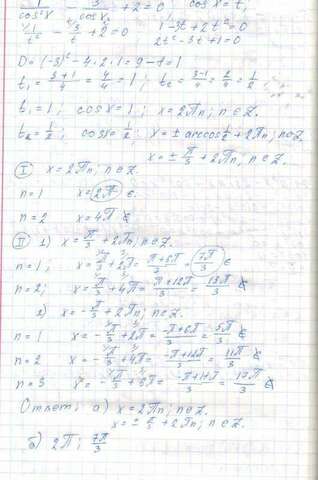 1/cos²x - 3/cosx + 2 = 0 ; cosx = t;
1/t² - 3/t + 2 = 0 1 - 3t + 2t² = 0
2t² - 3t + 1 = 0
D = (-3)² - 4·2·1 = 9 - 8 = 1
t₁ = 3+1/4 = 4/4 = 1; t₂ = 3-1/4 = 2/4 = 1/2
t₁ = 1; cosx = 1; x = 2πn; n∈Z.
t₂ = 1/2; cosx = 1/2; x = ± arccos 1/2 + 2πn; n∈Z.
x = ± π/3 + 2πn; n∈Z.
I x = 2πn; n∈Z.
n = 1 x = 2π ∈.
n = 2 x = 4π ∉
II 1) x = π/3 + 2πn; n∈Z.
n = 1; x = π/3 + 2π = π+6π/3 = 7π/3 ∈
n = 2; x = π/3 + 4π = π+12π/3 = 13π/3 ∉
2) x = -π/3 + 2πn; n∈Z.
n = 1 x = -π/3 + 2π = -π+6π/3 = 5π/3 ∉
n = 2 x = -π/3 + 4π = -π+12π/3 = 11π/3 ∉
n = 3 x = -π/3 + 6π = = 17π/3 ∉
Ответ: а) x = 2πn; n∈Z.
x = ± π/3 + 2πn; n∈Z.
б) 2π; 7π/3